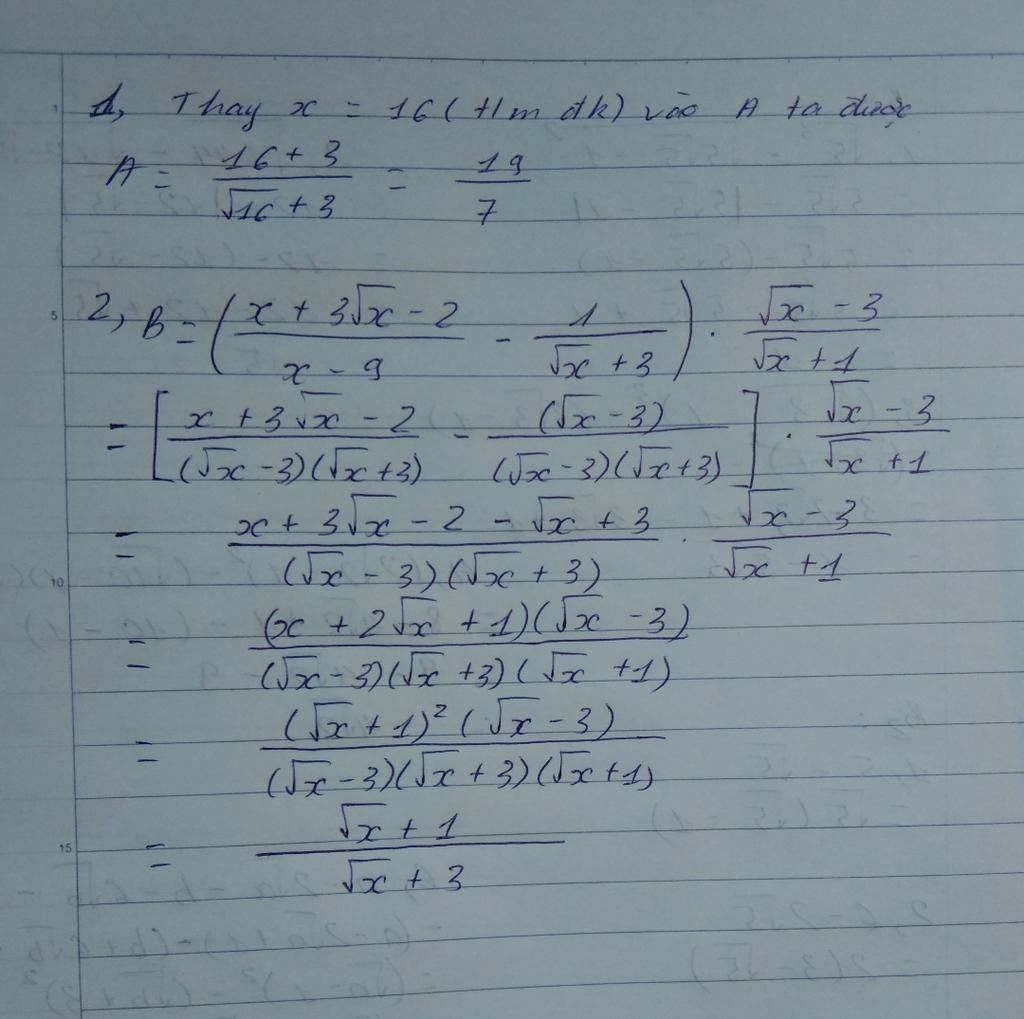 1, Thay x = 16 (t/m đk) vào A ta được
A = (16 + 3)/(√16 + 3) = 19/7
2, B = ((x + 3√x - 2)/(x - 9) - 1/(√x + 3)) . (√x - 3)/(√x + 1)
= [(x + 3√x - 2)/((√x - 3)(√x + 3)) - (√x - 3)/((√x - 3)(√x + 3))] . (√x - 3)/(√x + 1)
= (x + 3√x - 2 - √x + 3)/((√x - 3)(√x + 3)) . (√x - 3)/(√x + 1)
= ((x + 2√x + 1)(√x - 3))/((√x - 3)(√x + 3)(√x + 1))
= ((√x + 1)²(√x - 3))/((√x - 3)(√x + 3)(√x + 1))
= (√x + 1)/(√x + 3)